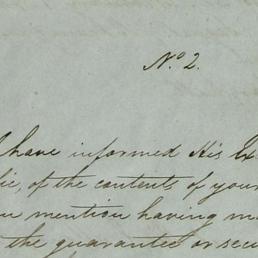 No 2.
I have informed His Ex
of the contents of your
mention having m
the guarantee or secu